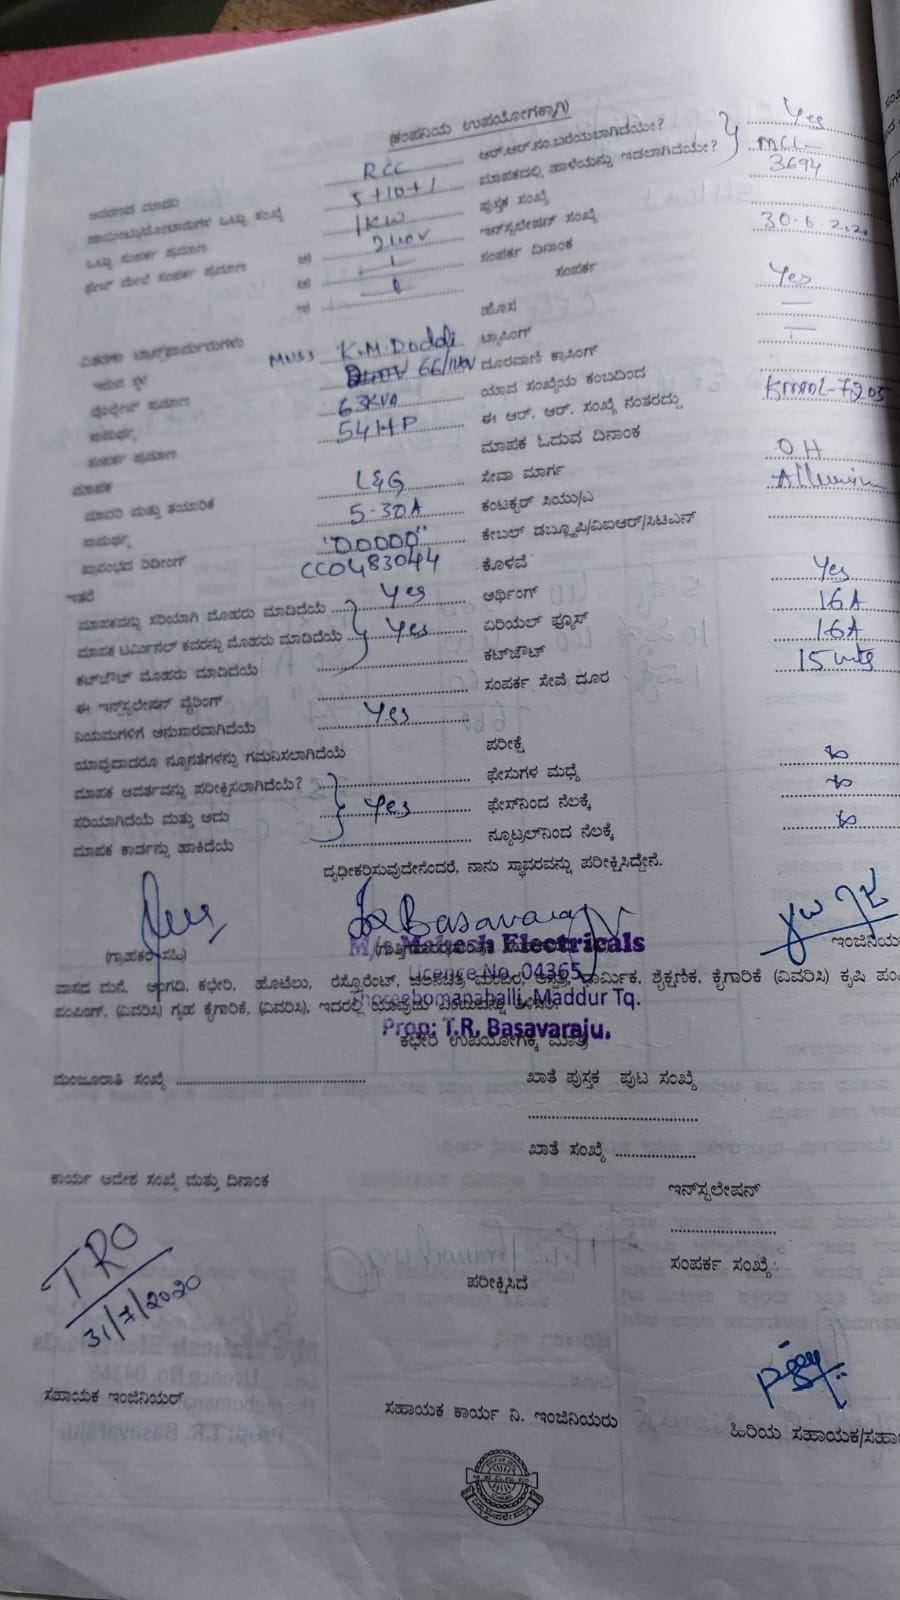 (ಕಂಪನಿಯ ಉಪಯೋಗಕ್ಕಾಗಿ)
RCC ಆರ್.ಆರ್.ನಂ.ಬರೆಯಲಾಗಿದೆಯೇ? Yes
5+10+1 ಮಾಪಕದಲ್ಲಿ ಹಾಳೆಯನ್ನು ಇಡಲಾಗಿದೆಯೇ? MCL
ಒಟ್ಟು ಸಂಪರ್ಕ ಪ್ರಮಾಣ 1KW ಪುಸ್ತಕ ಸಂಖ್ಯೆ 3694
ಸಂಪರ್ಕ ಪ್ರಮಾಣ 240V ಇನ್‌ಸ್ಟಲೇಷನ್ ಸಂಖ್ಯೆ
ಸಂಪರ್ಕ ದಿನಾಂಕ 30-6-2020
ಸಂಪರ್ಕ
ಹೊಸ Yes
ಇರುವ ಸ್ಥಳ MUSS K.M.Doddi ಟ್ಯಾಪಿಂಗ್ —
ಪ್ರಮಾಣ 66/11KV ದೂರವಾಣಿ ಕ್ರಾಸಿಂಗ್ —
ಸಾಮರ್ಥ್ಯ 63KVA ಯಾವ ಸಂಖ್ಯೆಯ ಕಂಬದಿಂದ
ಸಂಪರ್ಕ ಪ್ರಮಾಣ 54HP ಈ ಆರ್. ಆರ್. ಸಂಖ್ಯೆ ನಂತರದ್ದು
ಮಾಪಕ ಮಾಪಕ ಓದುವ ದಿನಾಂಕ
ಮಾದರಿ ಮತ್ತು ತಯಾರಿಕೆ L&G ಸೇವಾ ಮಾರ್ಗ OH
ಸಾಮರ್ಥ್ಯ 5-30A ಕಂಟಕ್ಟರ್ ಸಿಯು/ಎ
ಪ್ರಾರಂಭದ ರಿಡೀಂಗ್ "00000" ಕೇಬಲ್ ಡಬ್ಲ್ಯೂಪಿ/ವಿಐಆರ್/ಸಿಟಿಎನ್
ಇತರೆ CC0483044 ಕೊಳವೆ
ಮಾಪಕವನ್ನು ಸರಿಯಾಗಿ ಮೊಹರು ಮಾಡಿದೆಯೆ Yes ಅರ್ಥಿಂಗ್ Yes
ಮಾಪಕ ಟರ್ಮಿನಲ್ ಕವರನ್ನು ಮೊಹರು ಮಾಡಿದೆಯೆ Yes ಏರಿಯಲ್ ಫ್ಯೂಸ್ 16A
ಕಟ್‌ಔಟ್ ಮೊಹರು ಮಾಡಿದೆಯೆ ಕಟ್‌ಔಟ್ 16A
ಈ ಇನ್‌ಸ್ಟಲೇಷನ್ ವೈರಿಂಗ್ ಸಂಪರ್ಕ ಸೇವೆ ದೂರ 15 mts
ನಿಯಮಗಳಿಗೆ ಅನುಸಾರವಾಗಿದೆಯೆ Yes
ಯಾವುದಾದರೂ ನ್ಯೂನತೆಗಳನ್ನು ಗಮನಿಸಲಾಗಿದೆಯೆ ಪರೀಕ್ಷೆ
ಮಾಪಕ ಆವರ್ತವನ್ನು ಪರೀಕ್ಷಿಸಲಾಗಿದೆಯೆ? ಫೇಸುಗಳ ಮಧ್ಯೆ
ಸರಿಯಾಗಿದೆಯೆ ಮತ್ತು ಅದು Yes ಫೇಸ್‌ನಿಂದ ನೆಲಕ್ಕೆ
ಮಾಪಕ ಕಾರ್ಡನ್ನು ಹಾಕಿದೆಯೆ ನ್ಯೂಟ್ರಲ್‌ನಿಂದ ನೆಲಕ್ಕೆ
ದೃಢೀಕರಿಸುವುದೇನೆಂದರೆ, ನಾನು ಸ್ಥಾವರವನ್ನು ಪರೀಕ್ಷಿಸಿದ್ದೇನೆ.
Basavaraju
(ಗ್ರಾಹಕರ ಸಹಿ) M/s Mahesh Electricals
Licence No. 04365
ವಾಸದ ಮನೆ, ಅಂಗಡಿ, ಕಛೇರಿ, ಹೊಟೆಲು, ರೆಸ್ಟೋರೆಂಟ್, ಧಾರ್ಮಿಕ, ಶೈಕ್ಷಣಿಕ, ಕೈಗಾರಿಕೆ (ವಿವರಿಸಿ) ಕೃಷಿ
Maddur Tq.
ಪಂಪಿಂಗ್, (ವಿವರಿಸಿ) ಗೃಹ ಕೈಗಾರಿಕೆ, (ವಿವರಿಸಿ), ಇದರಲ್ಲಿ
Prop: T.R. Basavaraju.
ಕಛೇರಿ ಉಪಯೋಗಕ್ಕೆ ಮಾತ್ರ
ಮಂಜೂರಾತಿ ಸಂಖ್ಯೆ ಖಾತೆ ಪುಸ್ತಕ ಪುಟ ಸಂಖ್ಯೆ
ಖಾತೆ ಸಂಖ್ಯೆ
ಕಾರ್ಯ ಆದೇಶ ಸಂಖ್ಯೆ ಮತ್ತು ದಿನಾಂಕ
ಇನ್‌ಸ್ಟಲೇಷನ್
TRO
ಸಂಪರ್ಕ ಸಂಖ್ಯೆ
ಪರೀಕ್ಷಿಸಿದೆ
31/7/2020
ಸಹಾಯಕ ಇಂಜಿನಿಯರ್
ಸಹಾಯಕ ಕಾರ್ಯ ನಿ. ಇಂಜಿನಿಯರು
ಹಿರಿಯ ಸಹಾಯಕ/ಸಹಾ